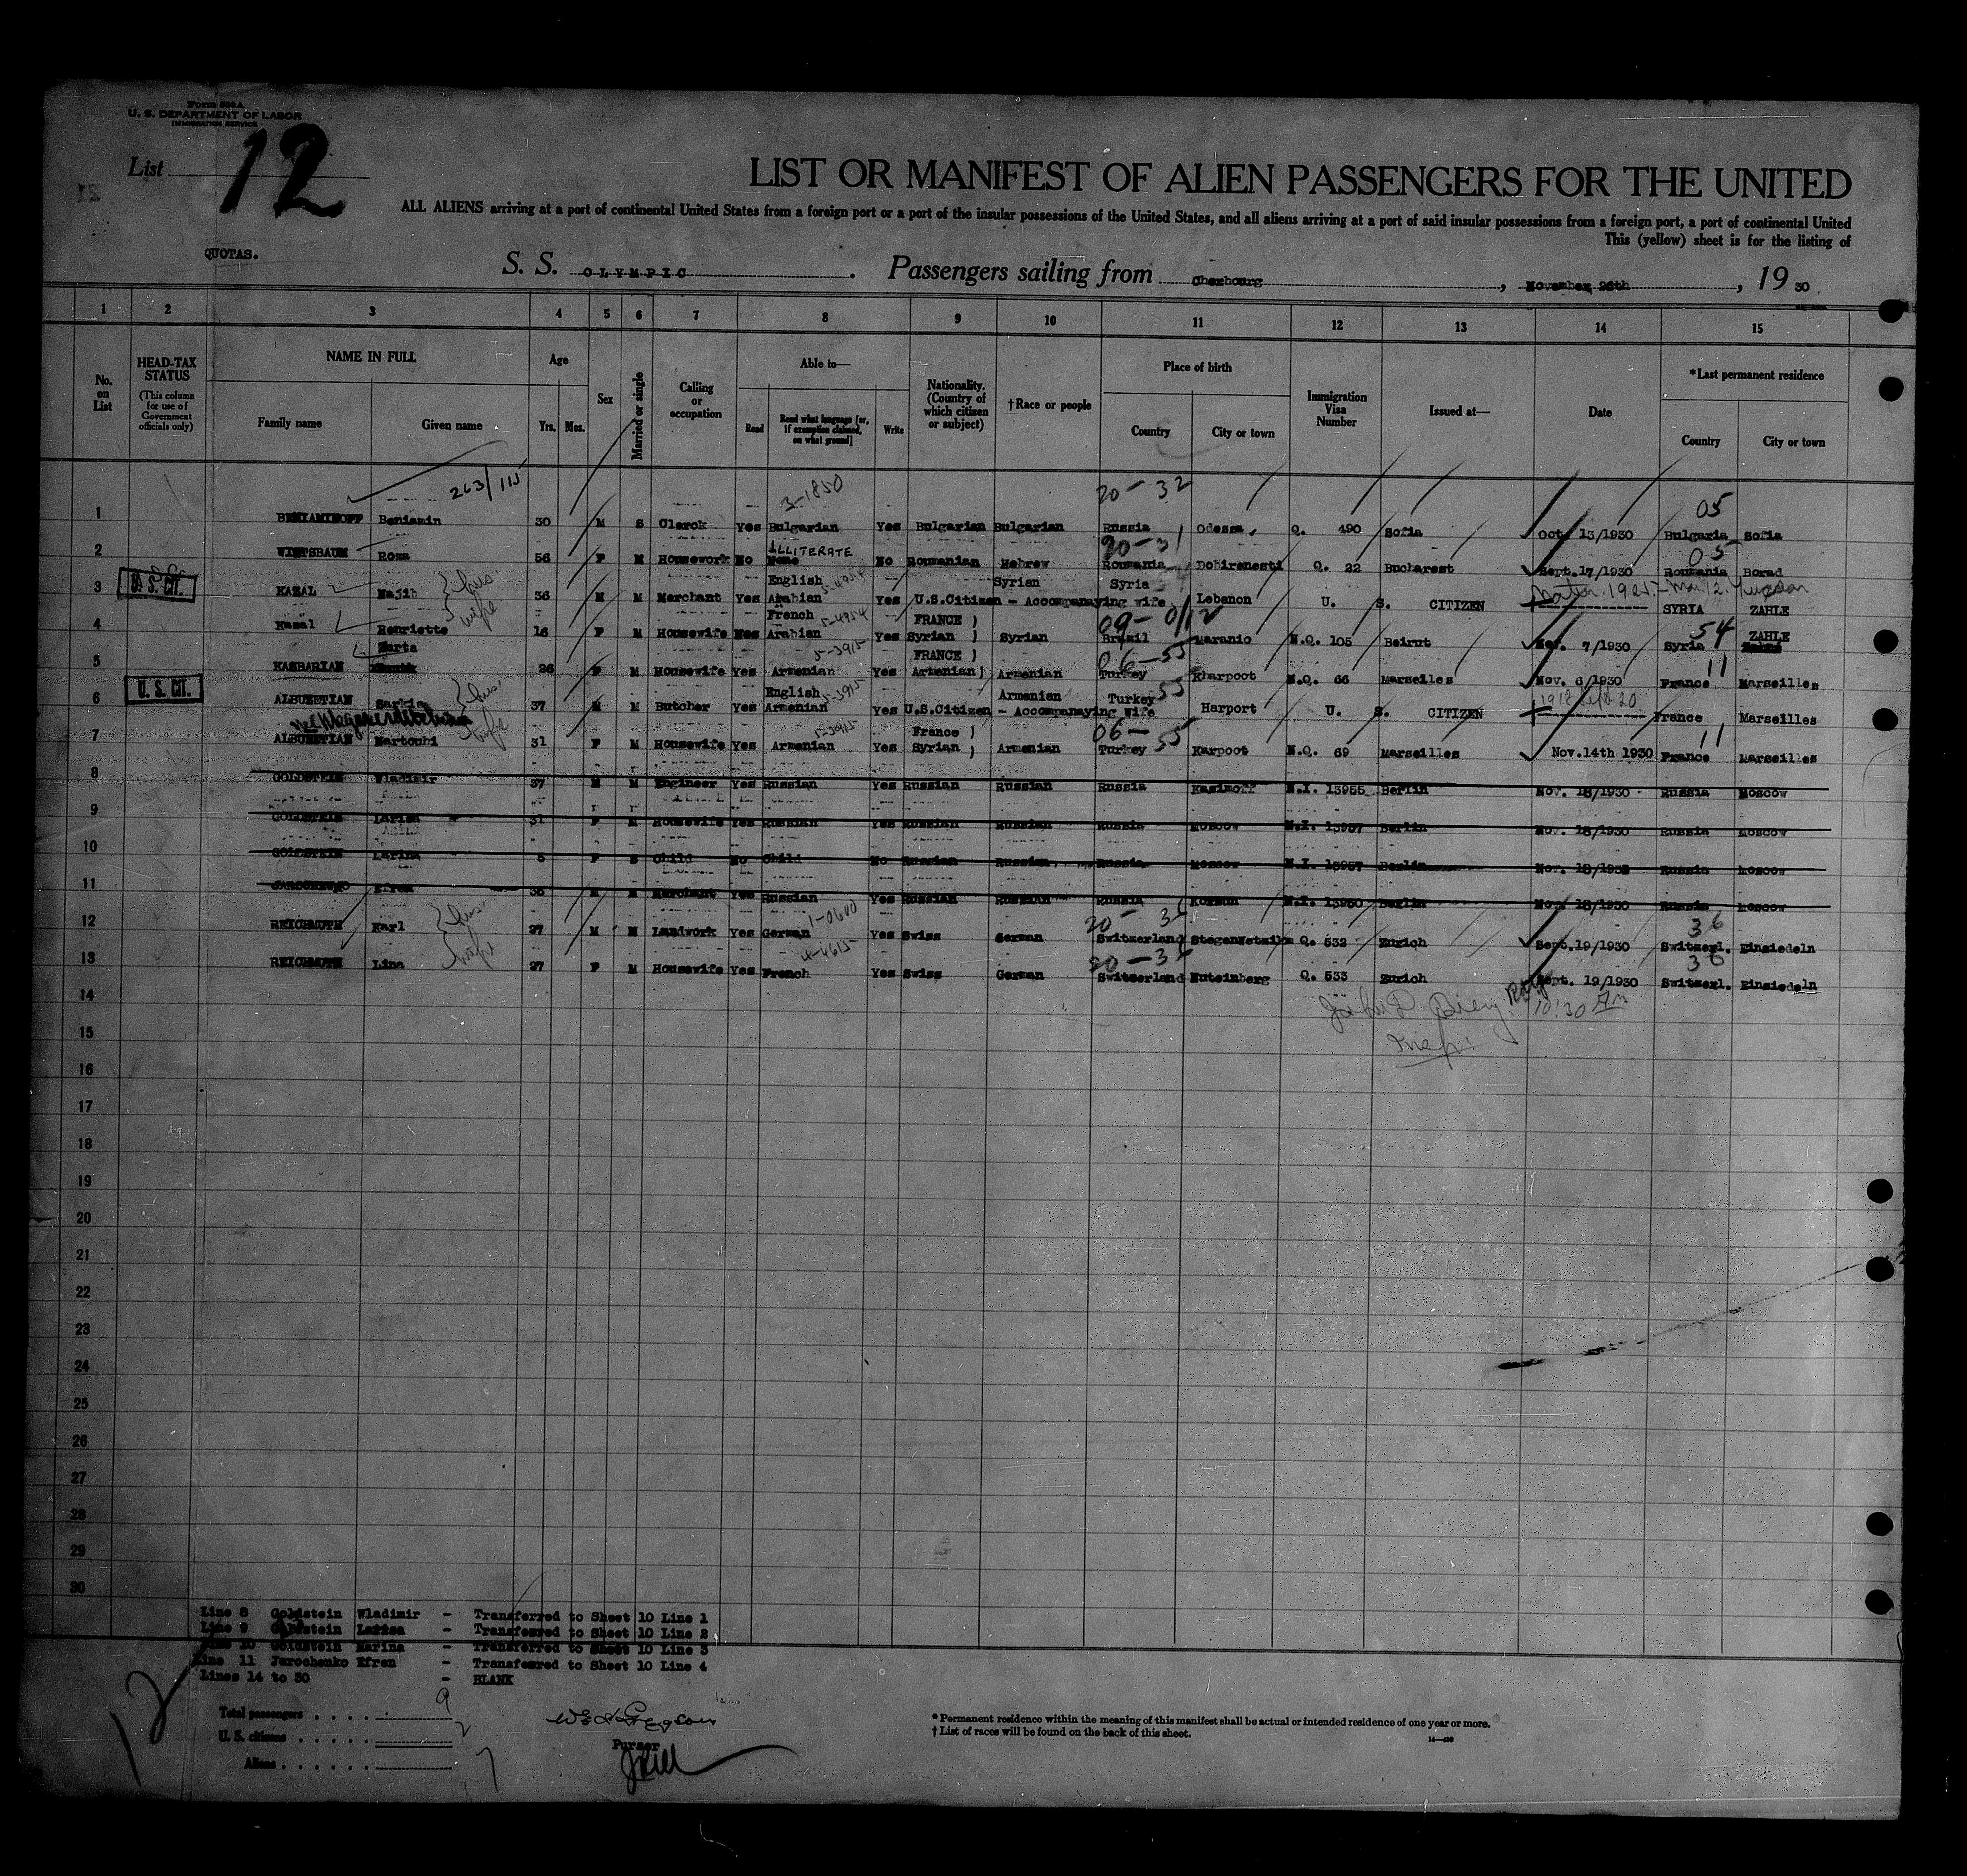 Form 500A
U. S. DEPARTMENT OF LABOR
IMMIGRATION SERVICE
List 12
LIST OR MANIFEST OF ALIEN PASSENGERS FOR THE UNITED
ALL ALIENS arriving at a port of continental United States from a foreign port or a port of the insular possessions of the United States, and all aliens arriving at a port of said insular possessions from a foreign port, a port of continental United
This (yellow) sheet is for the listing of
QUOTAS.
S. S. OLYMPIC. Passengers sailing from Cherbourg, November 26th, 19 30
1 2 3 4 5 6 7 8 9 10 11 12 13 14 15
No. on List
HEAD-TAX STATUS
(This column for use of Government officials only)
NAME IN FULL
Family name Given name
Age
Yrs. Mos.
Sex
Married or single
Calling or occupation
Able to—
Read Read what language [or, if exemption claimed, on what ground] Write
Nationality. (Country of which citizen or subject)
†Race or people
Place of birth
Country City or town
Immigration Visa Number
Issued at—
Date
*Last permanent residence
Country City or town
263/115 3-1850 20-32 05
1 BENIAMINOFF Beniamin 30 M S Clerck Yes Bulgarian Yes Bulgarian Bulgarian Russia Odessa, Q. 490 Sofia Oct 13/1930 Bulgaria Sofia
ILLITERATE 90-31 05
2 Rosa 56 F M Housework No None No Roumanian Hebrew Roumania Dobirenesti Q. 22 Bucharest Sept.17/1930 Roumania Borad
U. S. CIT. English Syrian Syria
3 KAZAL Najib hus. 36 M M Merchant Yes Arabian Yes U.S.Citizen - Accompanaying wife Lebanon U. S. CITIZEN SYRIA ZAHLE
French 5-4954 FRANCE ) 09-0/12 54 ZAHLE
4 Kazal Henriette wife 16 F M Housewife Yes Arabian Yes Syrian ) Syrian Brazil Maranio N.Q. 105 Beirut Nov. 7/1930 Syria
Marta 5-3915 FRANCE ) 06-55 11
5 KASBARIAN 26 F M Housewife Yes Armenian Yes Armenian) Armenian Turkey Kharpoot N.Q. 66 Marseilles Nov. 6/1930 France Marseilles
U. S. CIT. English 5-3915 Armenian Turkey 55
6 ALBUNETIAN Sarkis hus. 37 M M Butcher Yes Armenian Yes U.S.Citizen - Accompanaying wife Harport U. S. CITIZEN France Marseilles
5-3915 France ) 06-55 11
7 ALBUNETIAN Nartouhi wife 31 F M Housewife Yes Armenian Yes Syrian ) Armenian Turkey Karpoot N.Q. 69 Marseilles Nov.14th 1930 France Marseilles
8 GOLDSTEIN Wladimir 37 M M Engineer Yes Russian Yes Russian Russian Russia Kasimoff N.I. 13955 Berlin Nov. 18/1930 Russia Moscow
9 GOLDSTEIN Larisa 31 F M Housewife Yes Russian Yes Russian Russian Russia Moscow N.I. 13957 Berlin Nov. 18/1930 Russia Moscow
10 GOLDSTEIN 5 F S Child No Child No Russian Russian Russia Moscow N.I. 13957 Berlin Nov. 18/1930 Russia Moscow
11 Efren 36 M M Merchant Yes Russian Yes Russian Russian Russia N.I. 13950 Berlin Nov. 18/1930 Russia Moscow
1-0600 20-36 36
12 REICHMUTH Karl hus. 27 M M Landwork Yes German Yes Swiss German Switzerland Q. 532 Zurich Sept.19/1930 Switzerl. Einsiedeln
4-4615 20-36 36
13 REICHMUTH Lina wife 27 F M Housewife Yes French Yes Swiss German Switzerland Nuteinberg Q. 533 Zurich Sept. 19/1930 Switzerl. Einsiedeln
14 10:30 Am
15
16
17
18
19
20
21
22
23
24
25
26
27
28
29
30
Line 8 Goldstein Wladimir - Transferred to Sheet 10 Line 1
Line 9 Goldstein Larisa - Transferred to Sheet 10 Line 2
Line 10 Goldstein Marina - Transferred to Sheet 10 Line 3
Line 11 Jarochenko Efren - Transferred to Sheet 10 Line 4
Lines 14 to 30 - BLANK
12
Total passengers . . . . 9
U. S. citizens . . . . . 2
Aliens . . . . . . 7
Purser
* Permanent residence within the meaning of this manifest shall be actual or intended residence of one year or more.
† List of races will be found on the back of this sheet.